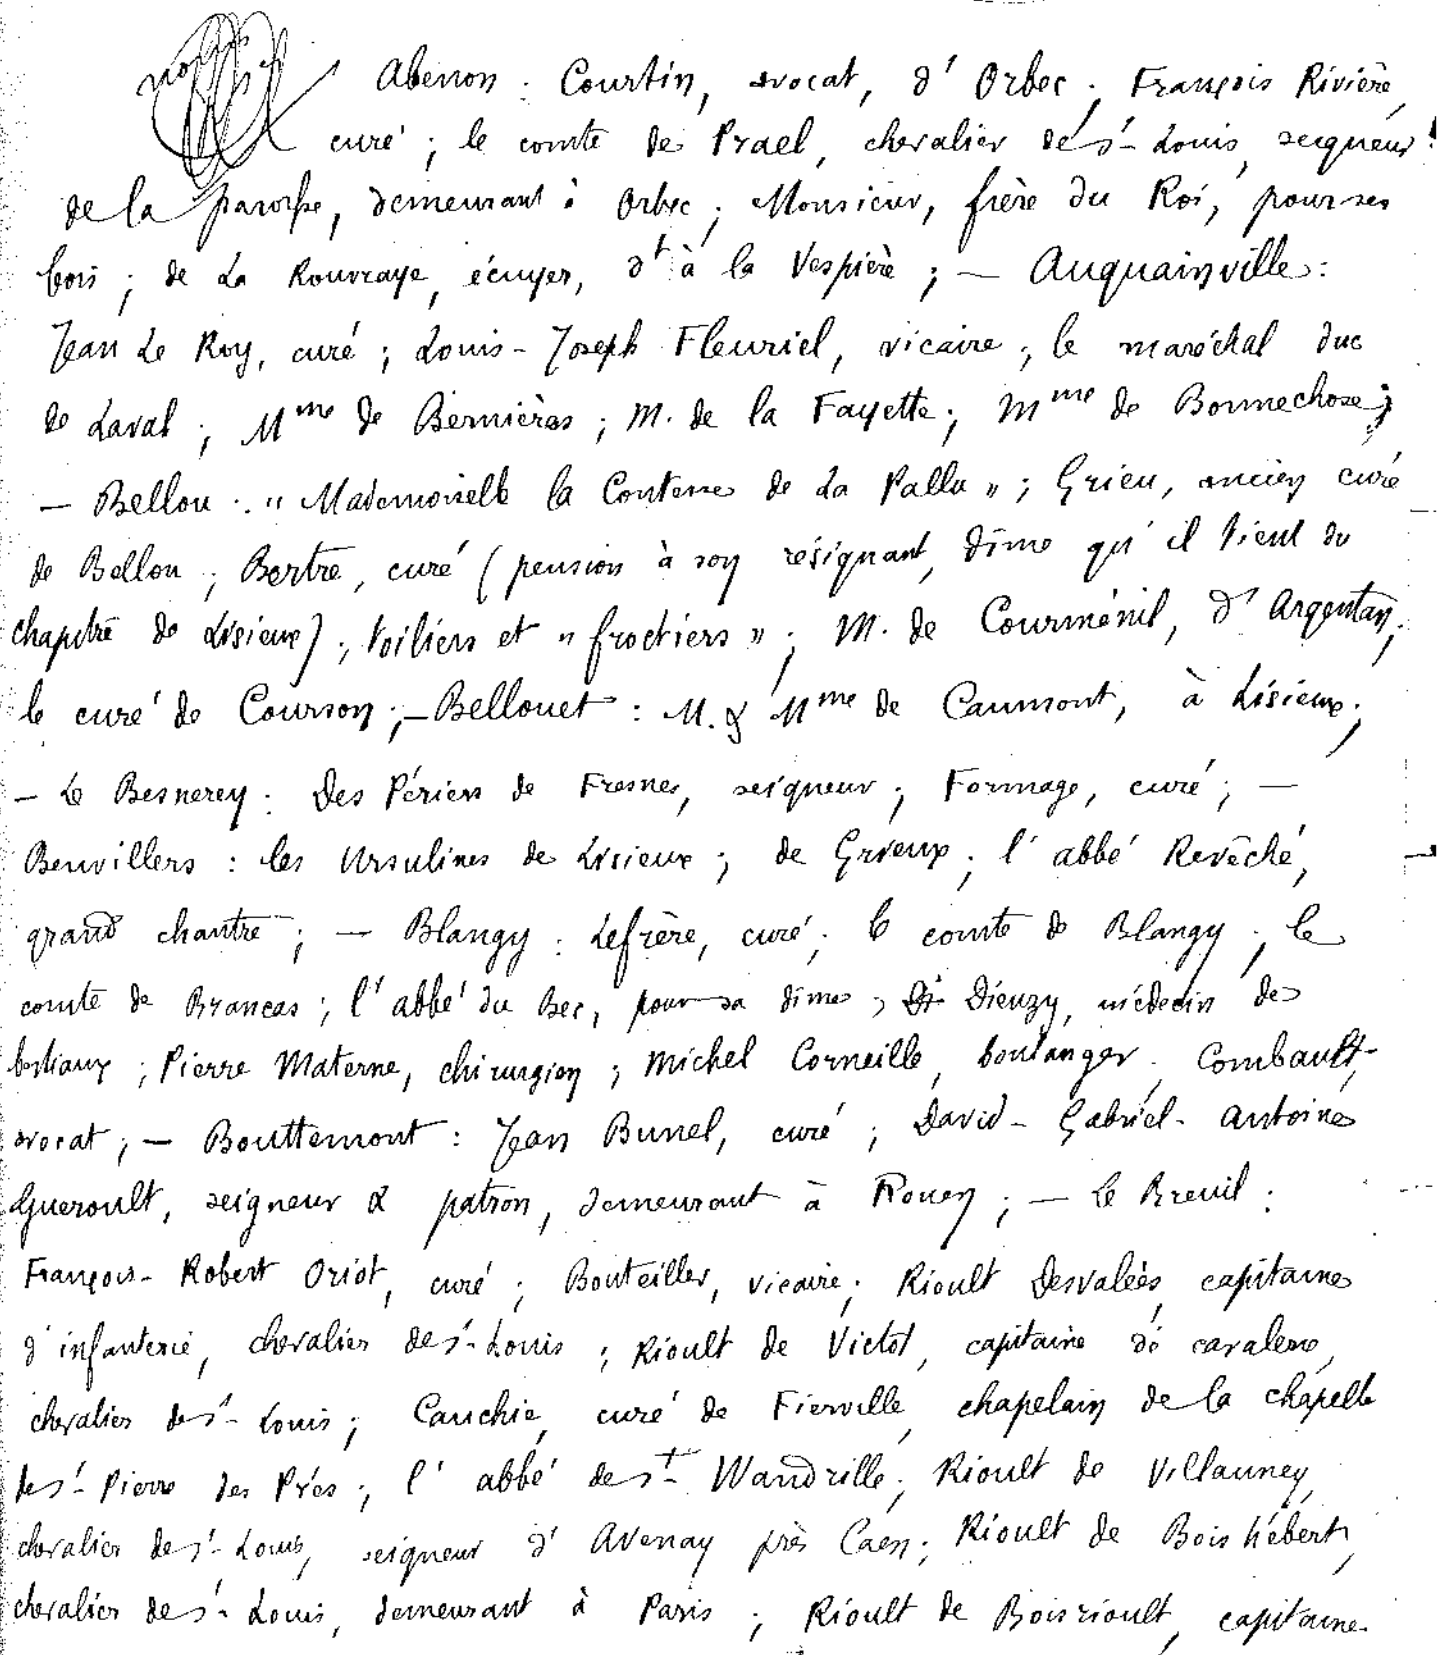 Abenon : Courtin, avocat, d'Orbec ; François Rivière,
curé ; le comte de Prael, chevalier de St-Louis, seigneur
de la paroisse, demeurant à Orbec ; Monsieur, frère du Roi, pour ses
bois ; de La Rouvraye, écuyer, dt à la Vespière ; — Auquainville :
Jean Le Roy, curé ; Louis-Joseph Fleuriel, vicaire ; le maréchal duc
de Laval ; Mme de Bernières ; M. de la Fayette ; Mme de Bonnechose ;
— Bellou : "Mademoiselle la Contesse de La Pallu" ; Grieu, ancien curé
de Bellou ; Bertre, curé (pension à son résignant, dîme qu'il tient du
chapitre de Lisieux) ; toiliers et "froctiers" ; M. de Courménil, d'Argentan ;
le curé de Courson ; — Bellouet : M. & Mme de Caumont, à Lisieux ;
— Le Besnerey : Des Périers de Fresnes, seigneur ; Formage, curé ; —
Beuvillers : les Ursulines de Lisieux ; de Grieux ; l'abbé Revêché,
grand chantre ; — Blangy : Lefrère, curé ; le comte de Blangy ; le
comte de Brancas ; l'abbé du Bec, pour sa dîme ; Dieuzy, médecin des
bestiaux ; Pierre Materne, chirurgien ; Michel Corneille, boulanger ; Combault,
avocat ; — Bouttemont : Jean Bunel, curé ; David-Gabriel-Antoine
Gueroult, seigneur & patron, demeurant à Rouen ; — Le Breuil :
François-Robert Oriot, curé ; Bouteiller, vicaire ; Rioult Desvalées, capitaine
d'infanterie, chevalier de St-Louis ; Rioult de Victot, capitaine de cavalerie,
chevalier de St-Louis ; Cauchie, curé de Fierville, chapelain de la chapelle
de St-Pierre des Prés ; l'abbé de St-Wandrille ; Rioult de Villauney,
chevalier de St-Louis, seigneur d'Avenay près Caen ; Rioult de Bois hébert,
chevalier de St-Louis, demeurant à Paris ; Rioult de Boisrioult, capitaine